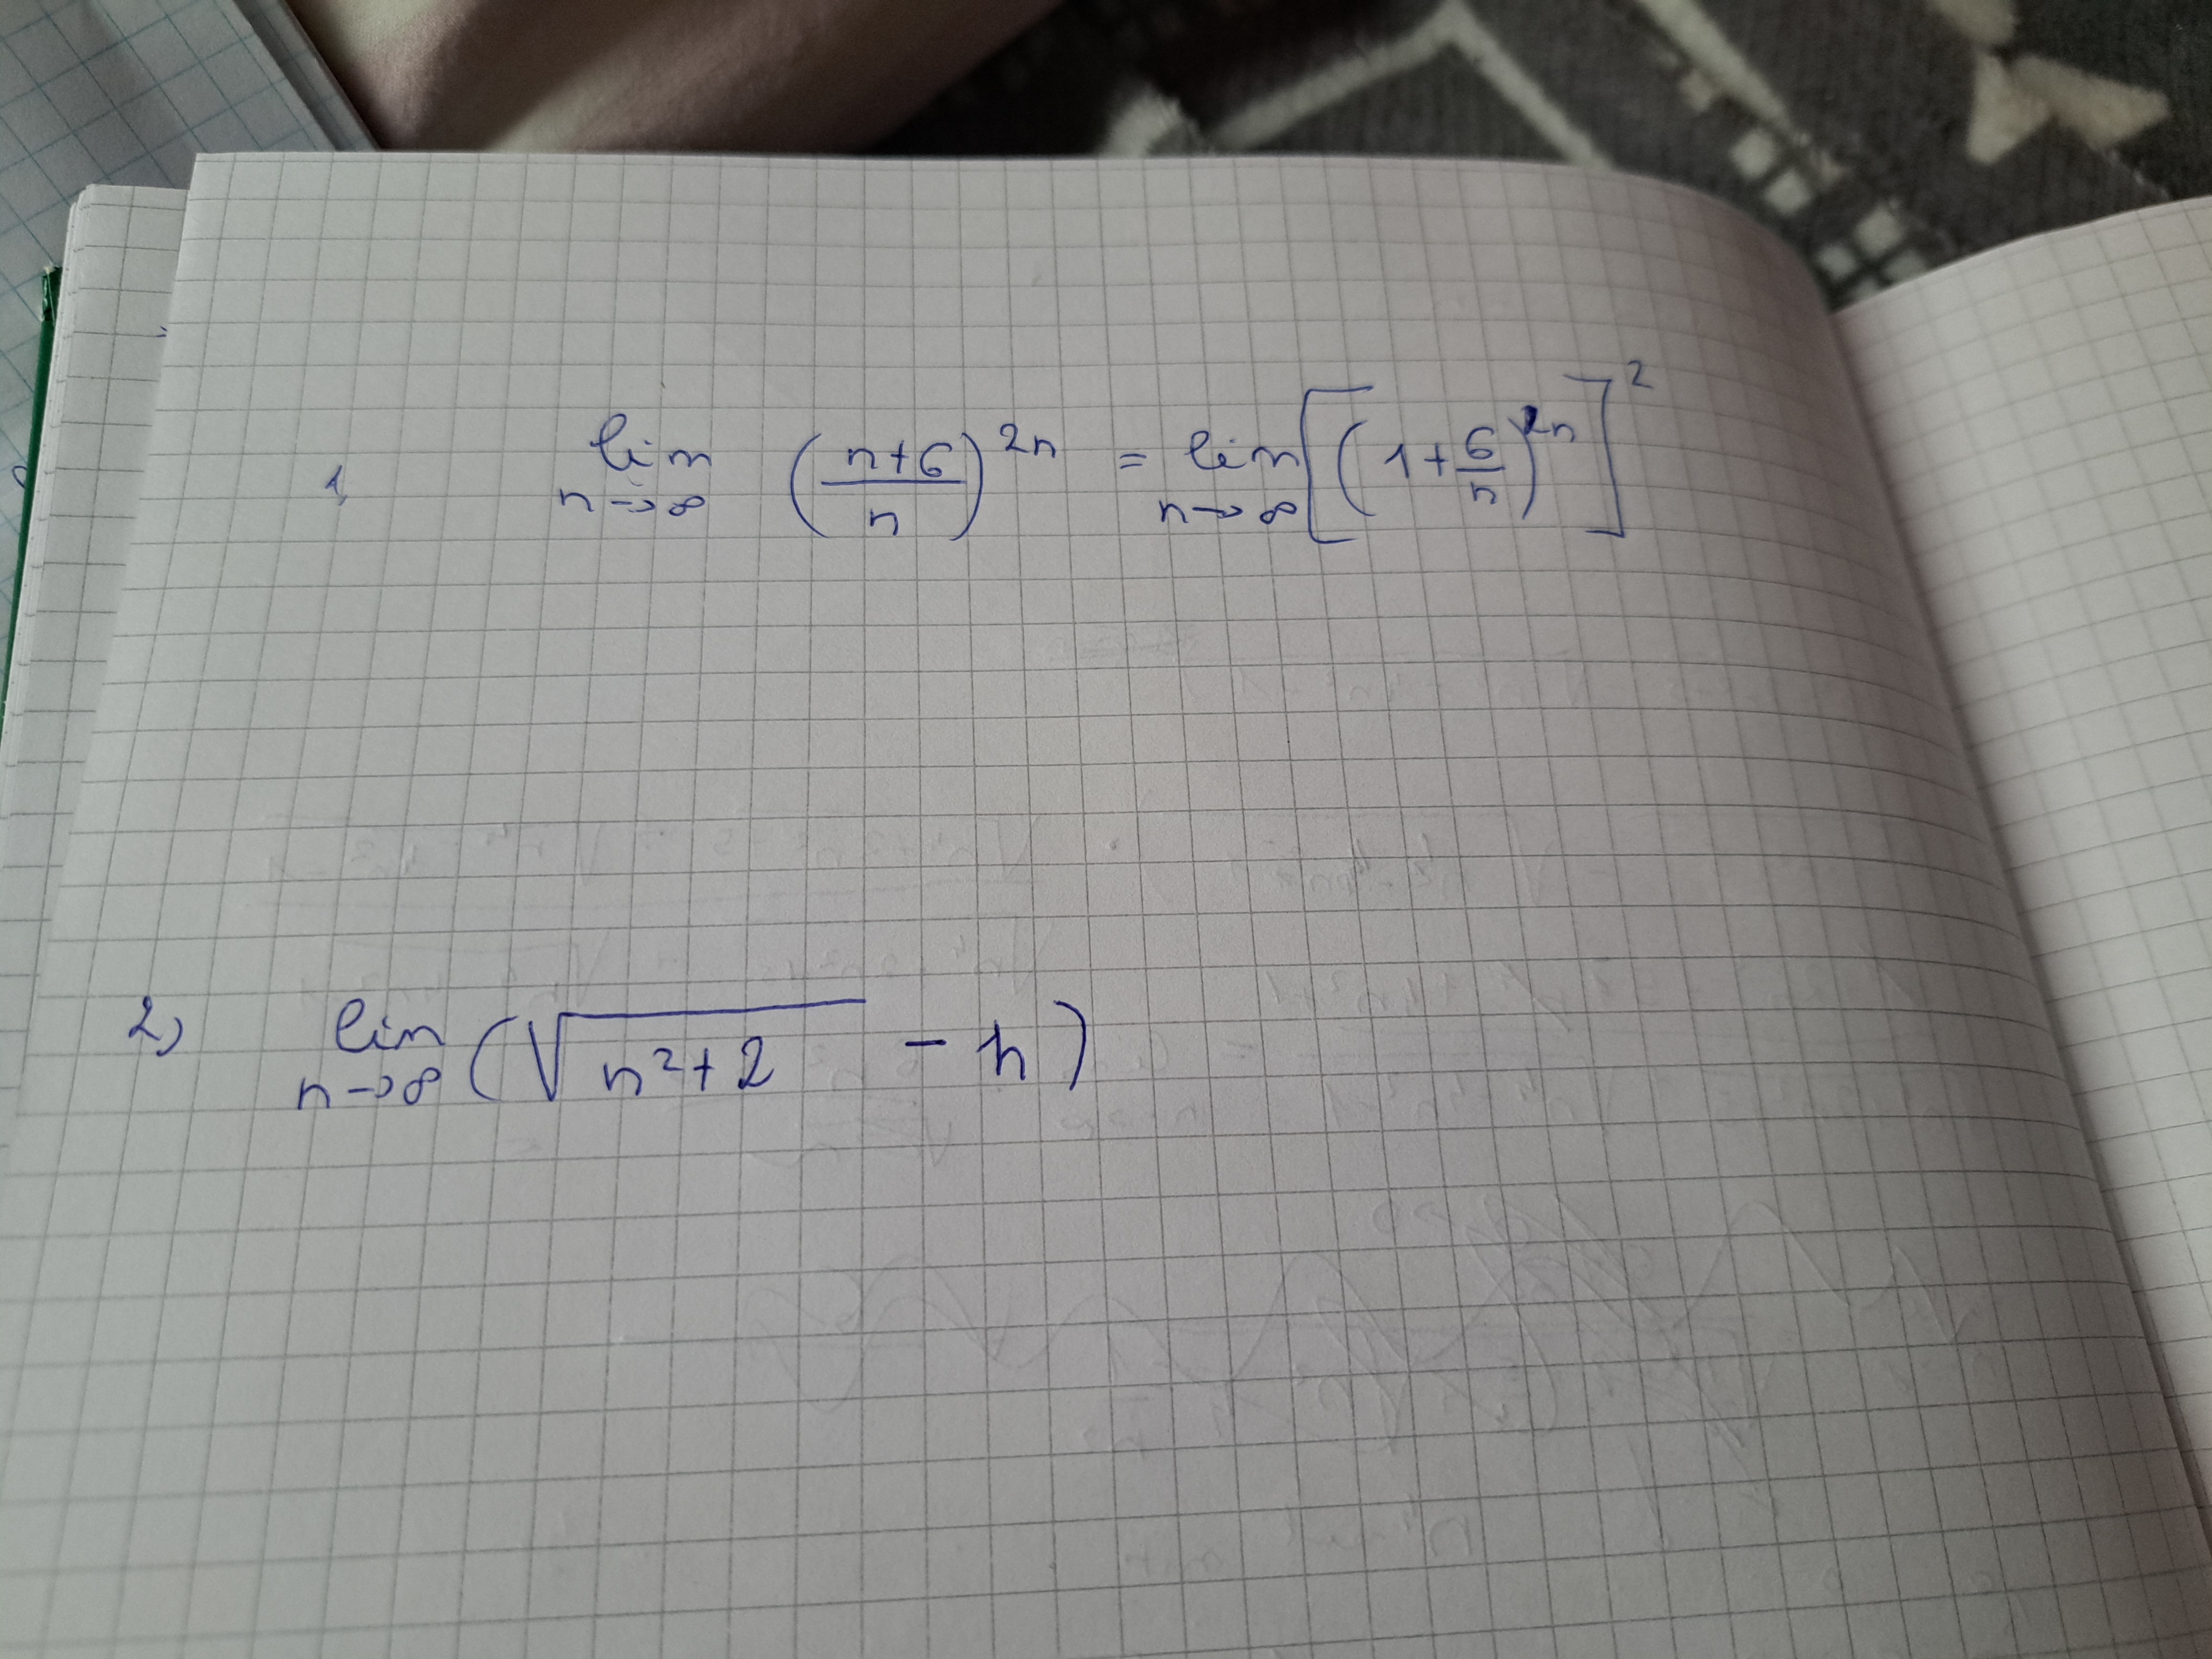 1, lim n→∞ ((n+6)/n)^2n = lim n→∞ [(1+6/n)^2n]^2
2) lim n→∞ (√(n²+2) - n)